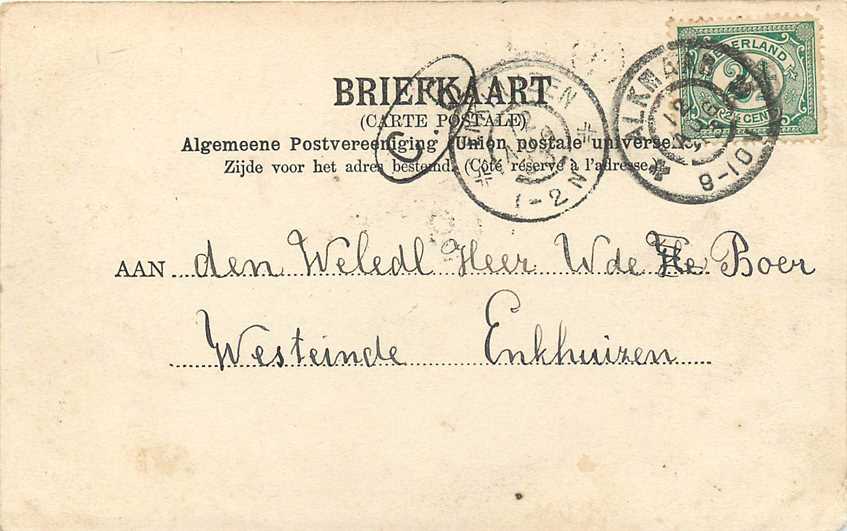 NEDERLAND
2½
CENT
ALKMAAR
8-10
1-2 N
C.
BRIEFKAART
(CARTE POSTALE)
Algemeene Postvereeniging (Union postale universelle)
Zijde voor het adres bestemd. (Côté réservé à l'adresse.)
AAN den Weledl Heer W de Boer
Westeinde Enkhuizen